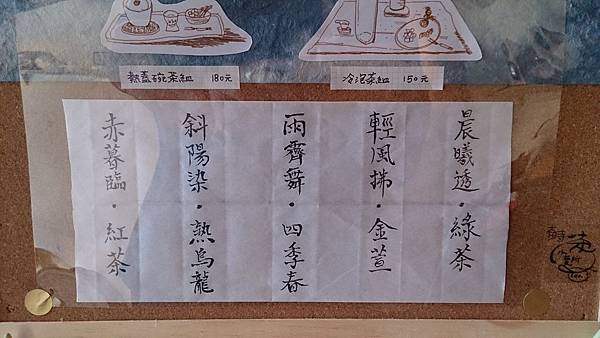 熱蓋碗茶組 180元
冷泡茶組 150元
晨曦透·綠茶
輕風拂·金萱
雨霽舞·四季春
斜陽染·熟烏龍
赤暮臨·紅茶